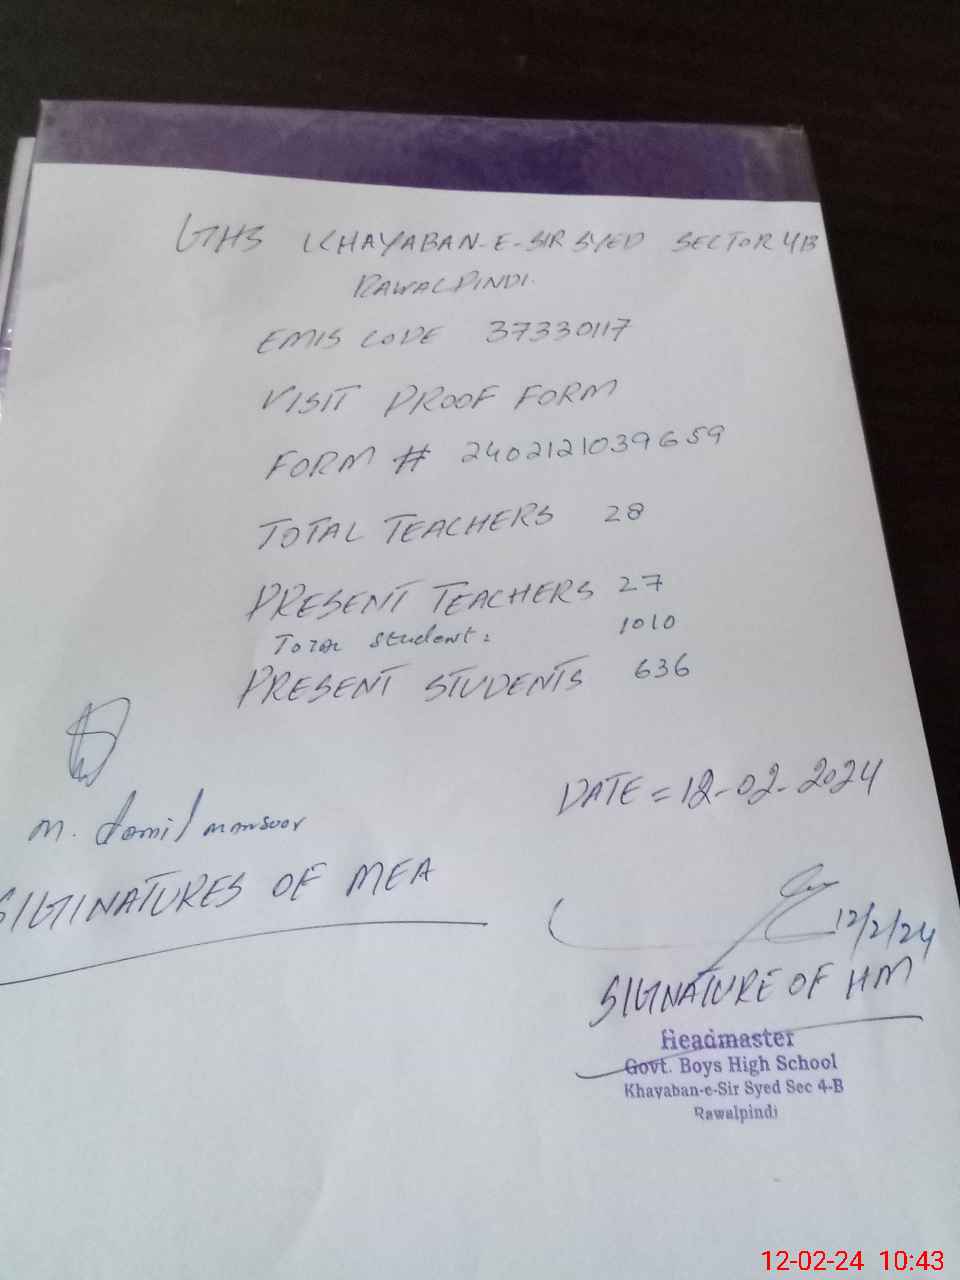 GHS KHAYABAN-E-SIR SYED SECTOR 4B
RAWALPINDI.
EMIS CODE 37330117
VISIT PROOF FORM
FORM # 2402121039659
TOTAL TEACHERS 28
PRESENT TEACHERS 27
Total student: 1010
PRESENT STUDENTS 636
DATE = 12-02-2024
M. Jamil mansoor
SIGINATURES OF MEA
12/2/24
SIGNATURE OF HM
Headmaster
Govt. Boys High School
Khayaban-e-Sir Syed Sec 4-B
Rawalpindi
12-02-24 10:43